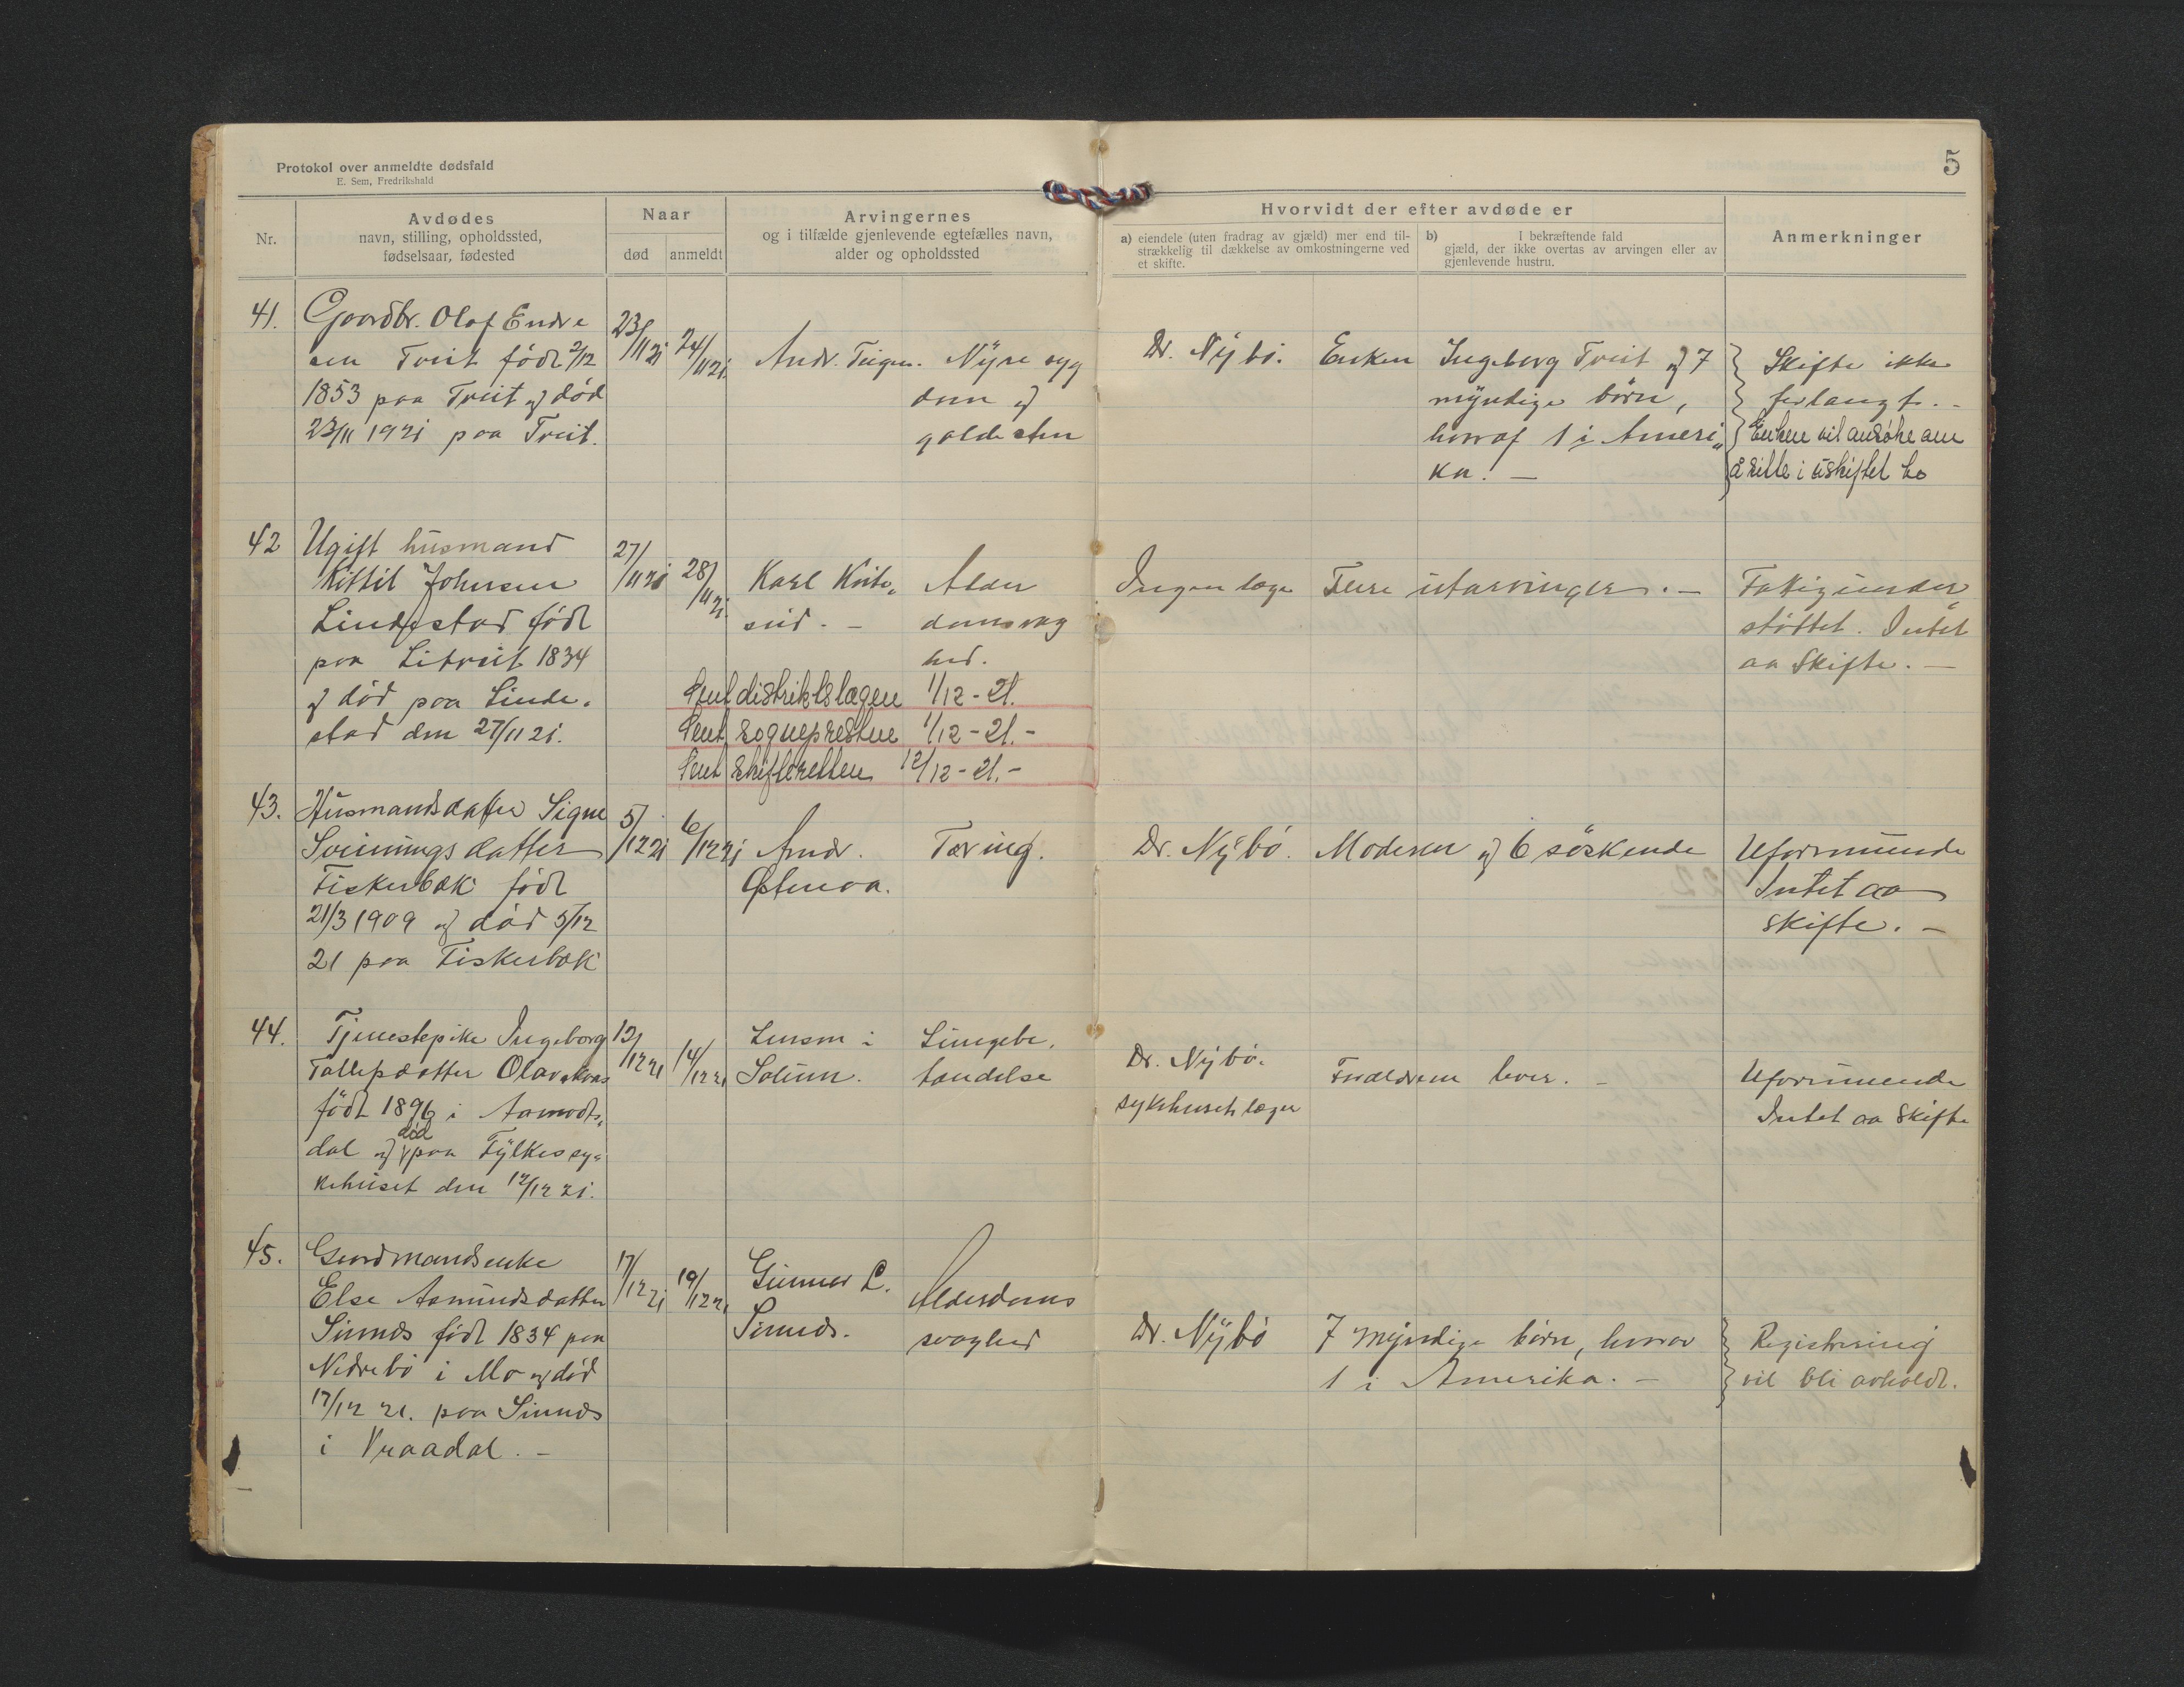 Protokol over anmeldte dødsfald
E. Sem, Fredrikshald
5
Nr.
Avdødes
navn, stilling, opholdssted,
fødselsaar, fødested
Naar
død
anmeldt
Arvingernes
og i tilfælde gjenlevende egtefælles navn,
alder og opholdssted
Hvorvidt der efter avdøde er
a) eiendele (uten fradrag av gjæld) mer end til-
strækkelig til dækkelse av omkostningerne ved
et skifte.
b) I bekræftende fald
gjæld, der ikke overtas av arvingen eller av
gjenlevende hustru.
Anmerkninger
41.
Gaardbr. Olaf Endre
sen Tveit født 2/12
1853 paa Tveit og død
23/11 1921 paa Tveit.
23/11 21
24/11 21.
Andr. Teigen.
Nyre syg
dom og
galdesten
Dr. Nybö.
Enken Ingeborg Tveit og 7
myndige börn,
hvoraf 1 i Ameri„
ka. —
Skifte ikke
forlangt. -
Enken vil ansøke om
å sitte i uskiftet bo
42
Ugift husmand
Kittil Johnsen
Lindestad født
paa Litveit 1834
og död paa Linde„
stad den 27/11 21.
27/11 21
28/11 21.
Karl Kvite„
sid. —
Alder
domsvag
hed.
Ingen læge
Flere utarvinger. —
Fattigunder„
støttet. Intet
aa Skifte. —
Sent distriktslægen 1/12 - 21.
Sent sogneprestne 1/12 - 21. -
Sent skifteretten 12/12 - 21. -
43.
Husmandsdatter Signe
Sveinungsdatter
Fiskerbæk født
21/3 1909 og död 5/12
21 paa Fiskerbæk
5/12 21
6/12 21
Andr.
Östenaa.
Tæring.
Dr. Nybö.
Moderen og 6 söskende
Uformuende
Intet aa
skifte. —
44.
Tjenestepike Ingeborg
Tallepsdatter Olavskaas
født 1896 i Aamodts„
dal og död paa Fylkessy„
kehuset den 12/12 21.
12/12 21
14/12 21
Lensm i
Solum.
Lungebe„
tendelse
Dr. Nybö.
sykehusets læger
Forældrene lever. —
Uformuende
Intet aa Skifte
45.
Gaardmandsenke
Else Asmundsdatter
Sinnds født 1834 paa
Nedrebö i Mo og död
17/12 21. paa Sinnds
i Vraadal. —
17/12 21
19/12 21
Gunnar L.
Sinnds.
Alderdoms
svaghed
Dr. Nybö
7 myndige börn, hvorav
1 i Amerika. —
Registrering
vil bli avholdt.